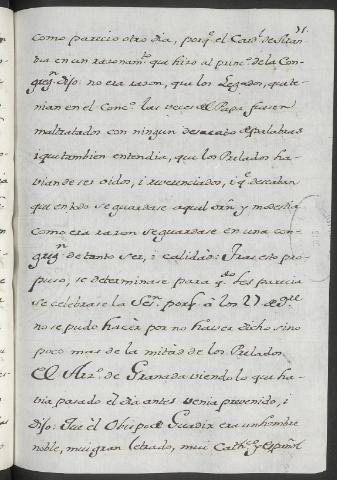 31.
como parecio otro dia, porq̃ el Card.l de Man
tua en un razonam.to que hizo al princ.o de la Con
greg.n dijo: no era razon, que los Legados, que te
nian en el Conc.o las veces del Papa fuesen
maltratados con ningun desacato de palabras
i que tambien entendia, que los Prelados ha
vian de ser oidos, i reverenciados, i q̃ deseaban
que en todo se guardase aquel orn̄ y modestia
como era razon se guardase en una con-
greg.n de tanto ser, i calidad: Tras esto pro
puso, se determinase para q.do les parecia
se celebrase la Ses.n porq̃ á los 27 de
no se pudo hacer por no haver dicho sino
poco mas de la mitad de los Prelados.
El Arz.o de Granada viendo lo que ha-
via pasado el dia antes venia prevenido, i
dijo: Que el Obispo de Guadix era un hombre
noble, mui gran letrado, mui Cath.co y Español